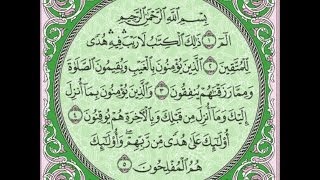 بِسْمِ اللَّهِ الرَّحْمَٰنِ الرَّحِيمِ
الٓمٓ ١ ذَٰلِكَ الْكِتَٰبُ لَا رَيْبَ ۛ فِيهِ ۛ هُدًى
لِّلْمُتَّقِينَ ٢ الَّذِينَ يُؤْمِنُونَ بِالْغَيْبِ وَيُقِيمُونَ الصَّلَوٰةَ
وَمِمَّا رَزَقْنَٰهُمْ يُنفِقُونَ ٣ وَالَّذِينَ يُؤْمِنُونَ بِمَآ أُنزِلَ
إِلَيْكَ وَمَآ أُنزِلَ مِن قَبْلِكَ وَبِالْءَاخِرَةِ هُمْ يُوقِنُونَ ٤
أُولَٰٓئِكَ عَلَىٰ هُدًى مِّن رَّبِّهِمْ ۖ وَأُولَٰٓئِكَ
هُمُ الْمُفْلِحُونَ ٥